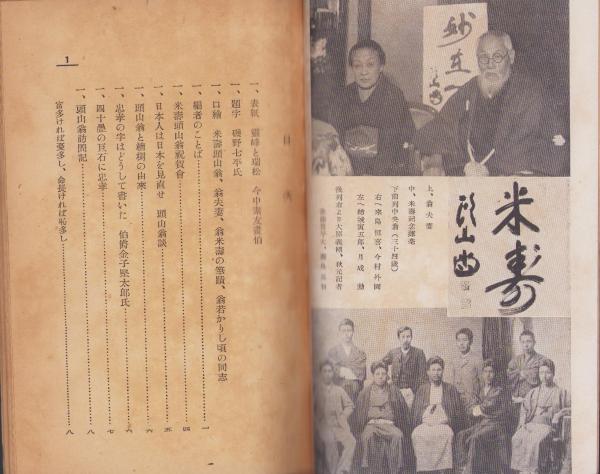 米寿
頭山満
上、翁夫妻
中、米壽記念揮毫
下前列中央翁(三十四歳)
右へ來島恒喜、今村外園
左へ結城寅五郎、月成勳
後列右より大原義剛、秋元記者
目次
一、表紙 靈峰と瑞松 今中素友畫伯
一、題字 磯野七平氏
一、口繪 米壽頭山翁、翁夫妻、翁米壽の筆蹟、翁若かりし頃の同志
一、編者のことば……一
一、米壽頭山翁祝賀會……四
一、日本人は日本を見直せ 頭山翁談……五
一、頭山翁と楠樹の由來……六
一、忠孝の字はどうして書いた 伯爵金子堅太郎氏……六
一、四十疊の巨石に忠孝……七
一、頭山翁訪問記……八
富多ければ憂多し、命長ければ恥多し……八
1